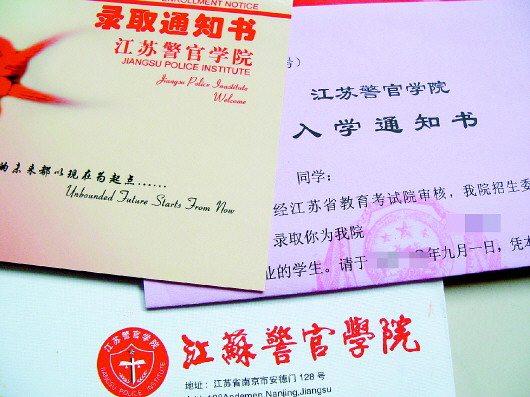 ENROLLMENT NOTICE
录取通知书
江苏警官学院
JIANGSU POLICE INSTITUTE
Jiangsu Police Institute
Welcome
的未来都以现在为起点......
Unbounded Future Starts From Now
号）
江苏警官学院
入学通知书
同学：
经江苏省教育考试院审核，我院招生委
录取你为我院
业的学生。请于
年九月一日，凭本
江苏警官学院
JIANGSU POLICE INSTITUTE
江蘇警官學院
地址：江苏省南京市安德门128号
Andemen Nanjing,Jiangsu